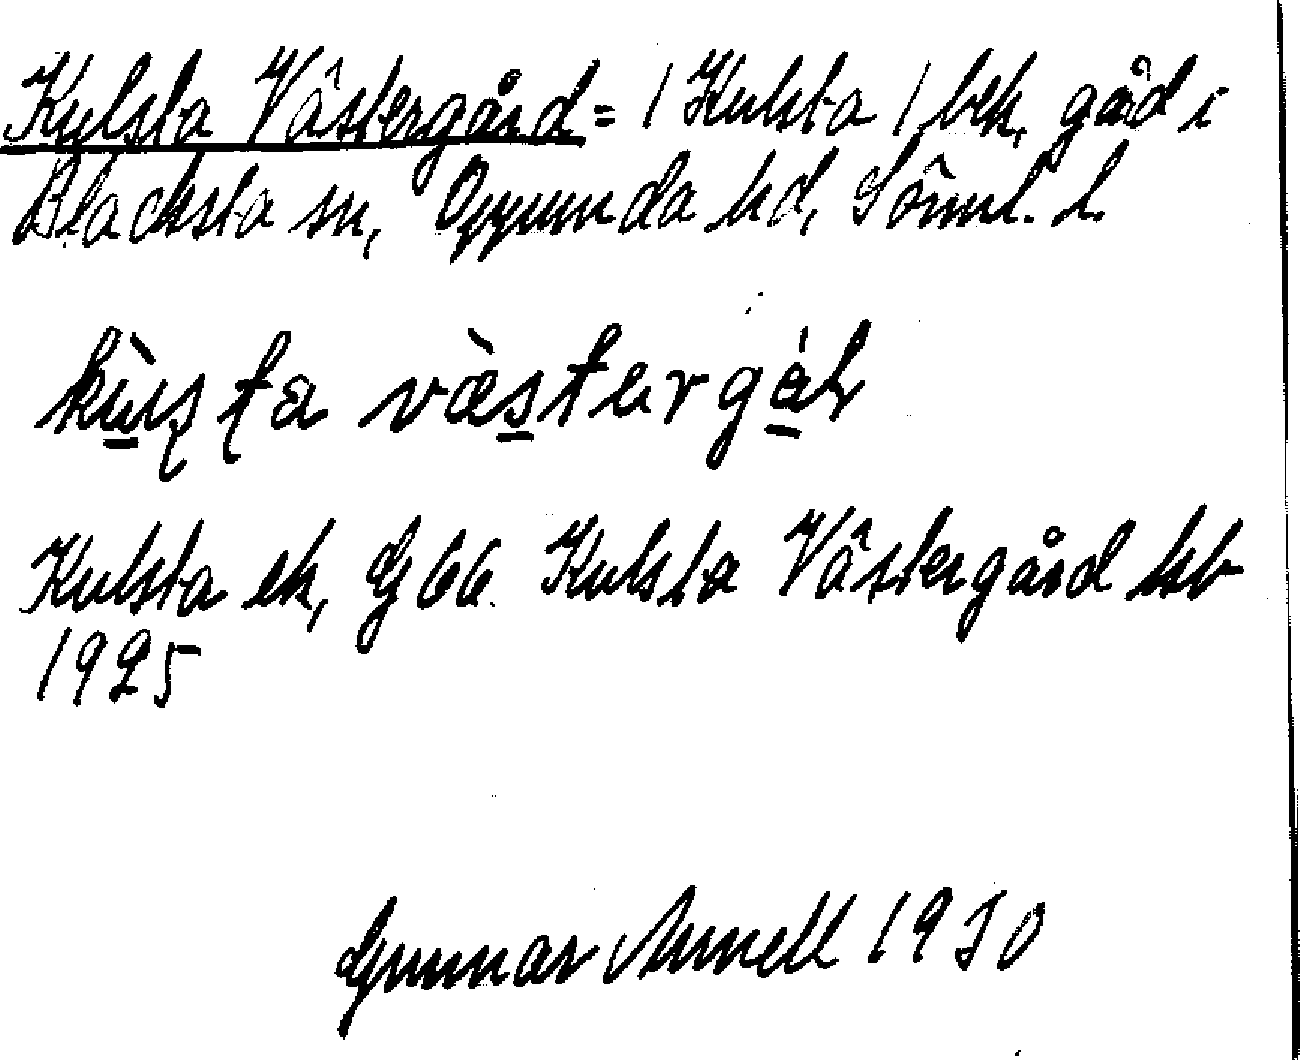 Kulsta Västergård = / Kulsta / bek, gård i
Blacksta sn, Oppunda hd, Söml. L.
västergå
Kulsta ek, G 66. Kulsta Västergård hb
1925
Gunnar Arnell 1930